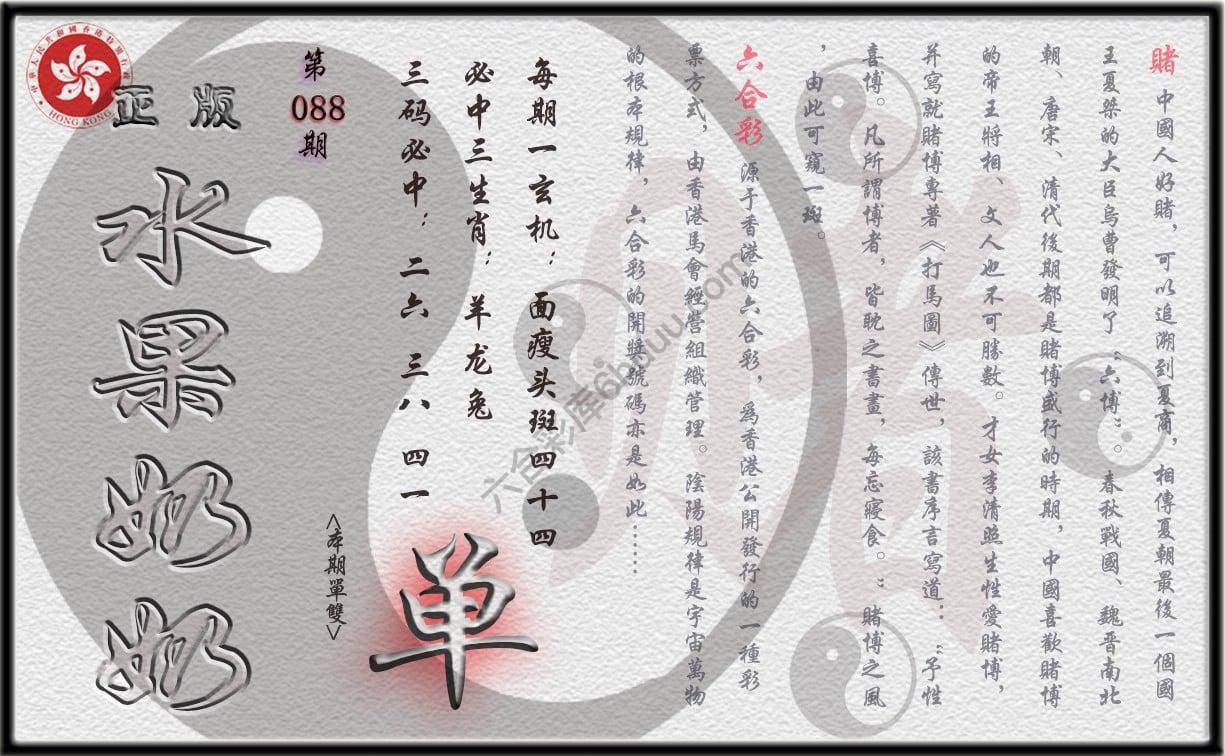 賭 中國人好賭，可以追溯到夏商，相傳夏朝最後一個國
王夏桀的大臣烏曹發明了“六博”。春秋戰國、魏晋南北
朝、唐宋、清代後期都是賭博盛行的時期，中國喜歡賭博
的帝王將相、文人也不可勝數。才女李清照生性愛賭博，
并寫就賭博專著《打馬圖》傳世，該書序言寫道：“予性
喜博。凡所謂博者，皆耽之書畫，每忘寢食。”賭博之風
，由此可窺一斑。
六合彩 源于香港的六合彩，爲香港公開發行的一種彩
票方式，由香港馬會經營組織管理。陰陽規律是宇宙萬物
的根本規律，六合彩的開獎號碼亦是如此……
每期一玄机：面瘦头斑四十四
必中三生肖：羊龙兔
三码必中：二六 三八 四一
单
<本期單雙>
第
088
期
正版
水果奶奶
中華人民共和國香港特別行政區
HONG KONG
六合彩库6huuu.com